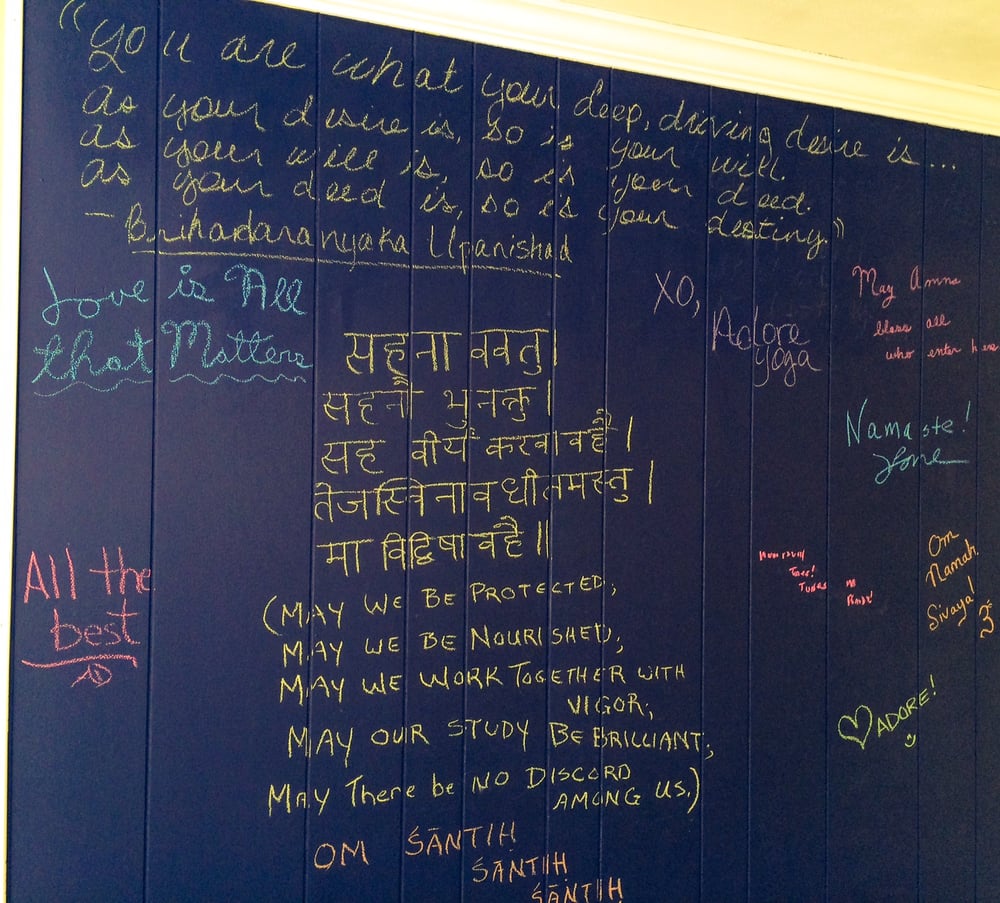 "you are what your deep, driving desire is...
as your desire is, so is your will.
as your will is, so is your deed.
as your deed is, so is your destiny."
- Brihadaranyaka Upanishad
Love is All
that Matters
XO,
Adore
yoga
May Amma
bless all
who enter here
सहना ववतु।
सहनौ भुनक्तु।
सह वीर्यं करवावहै।
तेजस्विनावधीतमस्तु।
मा विद्विषावहै॥
Namaste!
All the
best
(MAY WE BE PROTECTED;
MAY WE BE NOURISHED;
MAY WE WORK TOGETHER WITH
VIGOR;
MAY OUR STUDY BE BRILLIANT;
MAY There be NO DISCORD
AMONG US.)
OM ŚĀNTIḤ
ŚĀNTIḤ
ŚĀNTIḤ
Om
Namah
Sivaya!
ADORE!